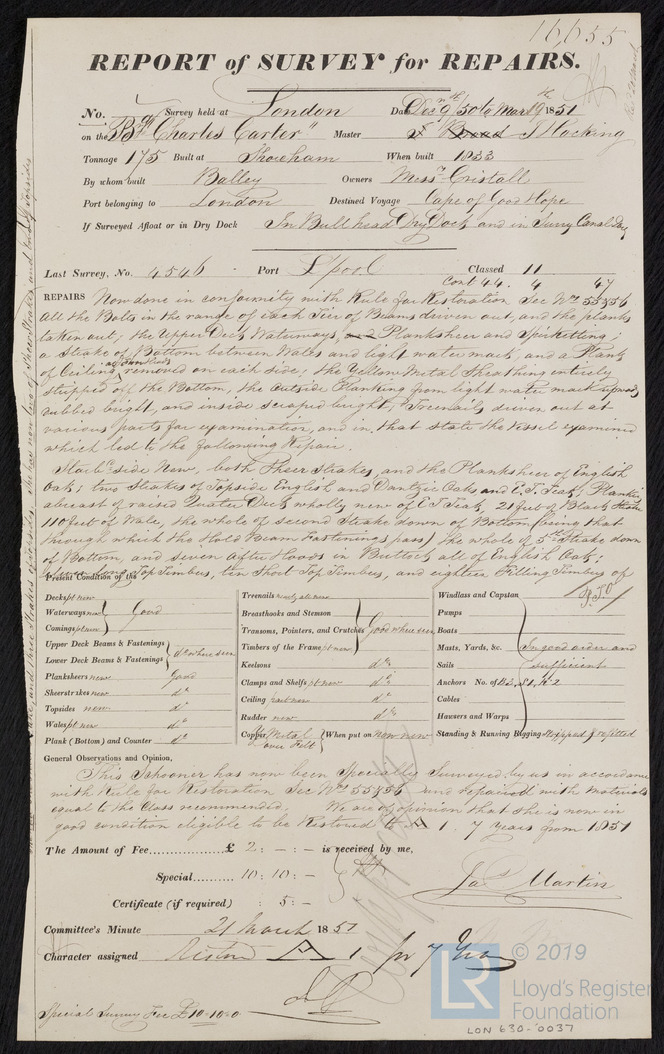 16655
REPORT of SURVEY for REPAIRS.
No. Survey held at London Date Decr 9th 50 to Mar 19th 1851
on the Bg "Charles Carter" Master J Stocking
Tonnage 175 Built at Shoreham When built 1833
By whom built Balley Owners Messrs Cristall
Port belonging to London Destined Voyage Cape of Good Hope
If Surveyed Afloat or in Dry Dock In Bull head Dry Dock and in Surry Canal Dock
Last Survey, No. 4546 Port Lpool Classed 11
Cont 44. 4 47
REPAIRS Now done in conformity with Rule for Restoration Sec Nos 55 & 56
All the Bolts in the range of each Tier of Beams driven out, and the planks
taken out; the Upper Deck Waterways, Planksheer and Spirketting;
a Strake of Bottom between Wales and light water mark; and a Plank
of Ceiling removed on each side; the Yellow Metal Sheathing entirely
stripped off the Bottom, the outside Planking from light water mark upwards
rubbed bright, and inside scraped bright, Treenails driven out at
various parts for examination, and in that state the Vessel examined
which led to the following Repair.
Starbd side New, both Sheer Strakes, and the Planksheer of English
Oak; two Strakes of Topside English and Dantzic Oaks and E.I. Teak; Planking
abreast of raised Quarter Deck wholly new of E I Teak, 21 feet of Black Strake
110 feet of Wale, the whole of second Strake down of Bottom (being that
through which the Hold Beam Fastenings pass) the whole of 5th Strake down
of Bottom, and seven After Hoods in Buttock all of English Oak;
Long Top Timbers, ten Short Top Timbers, and eighteen Filling Timbers of
P.T.O
Present Condition of the
Decks pt new
Waterways new } Good
Comings pt new
Upper Deck Beams & Fastenings } do where seen
Lower Deck Beams & Fastenings
Planksheers new Good
Sheerstrakes new do
Topsides new do
Wales pt new do
Plank (Bottom) and Counter do
Treenails nearly all new
Breasthooks and Stemson
Transoms, Pointers, and Crutches } Good where seen
Timbers of the Frame pt new
Keelsons do
Clamps and Shelfs pt new do
Ceiling part new do
Rudder new do
Copper Metal over Felt { When put on Now new
Windlass and Capstan
Pumps
Boats
Masts, Yards, &c. } In good order and
Sails sufficient
Anchors No. of B3, S1, K2
Cables
Hawsers and Warps
Standing & Running Rigging Stripped & refitted
General Observations and Opinion,
This Schooner has now been Specially Surveyed by us in accordance
with Rule for Restoration Sec Nos 55 & 56 and repaired with materials
equal to the Class recommended. We are of opinion that she is now in
good condition eligible to be Restored to A 1. 7 years from 1851
The Amount of Fee £ 2: - : - is received by me,
Special 10: 10: - Jas Martin
Certificate (if required) : 5: -
Committee's Minute 21 March 1851
Character assigned Restored A 1 for 7 Years
Special Survey Fee £10-10-0
© 2019
LR Lloyd's Register
Foundation
LON 630-0037